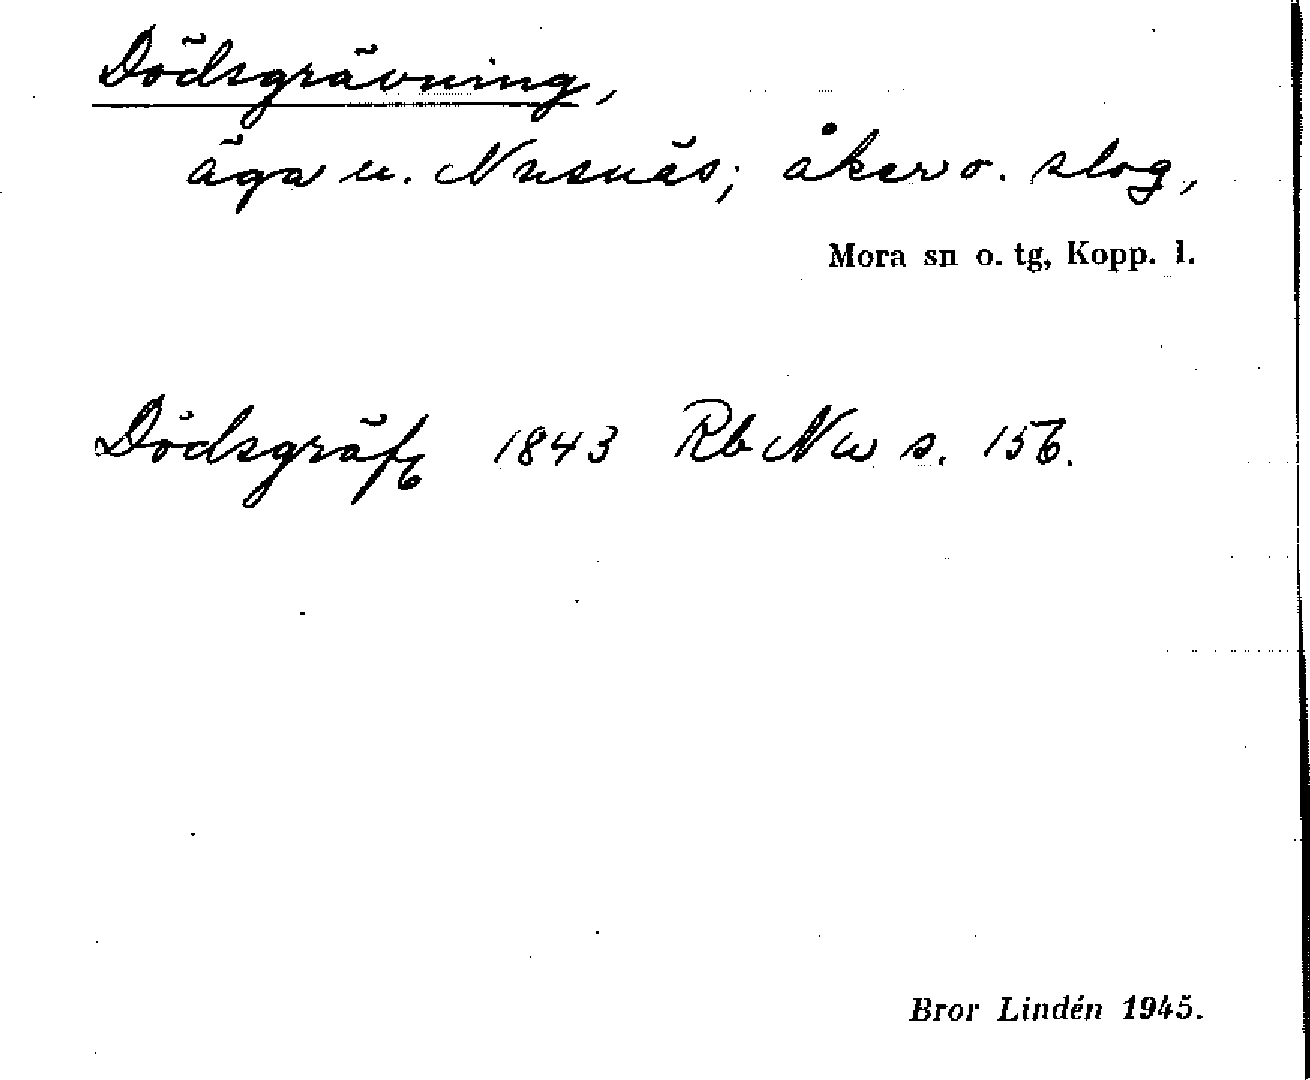 Dödsgrävning,
äga u. Nusnäs; åker o. slog,
Mora sn o. tg, Kopp. l.
Dödsgräft 1843 Rb Nw s. 156.
Bror Lindén 1945.